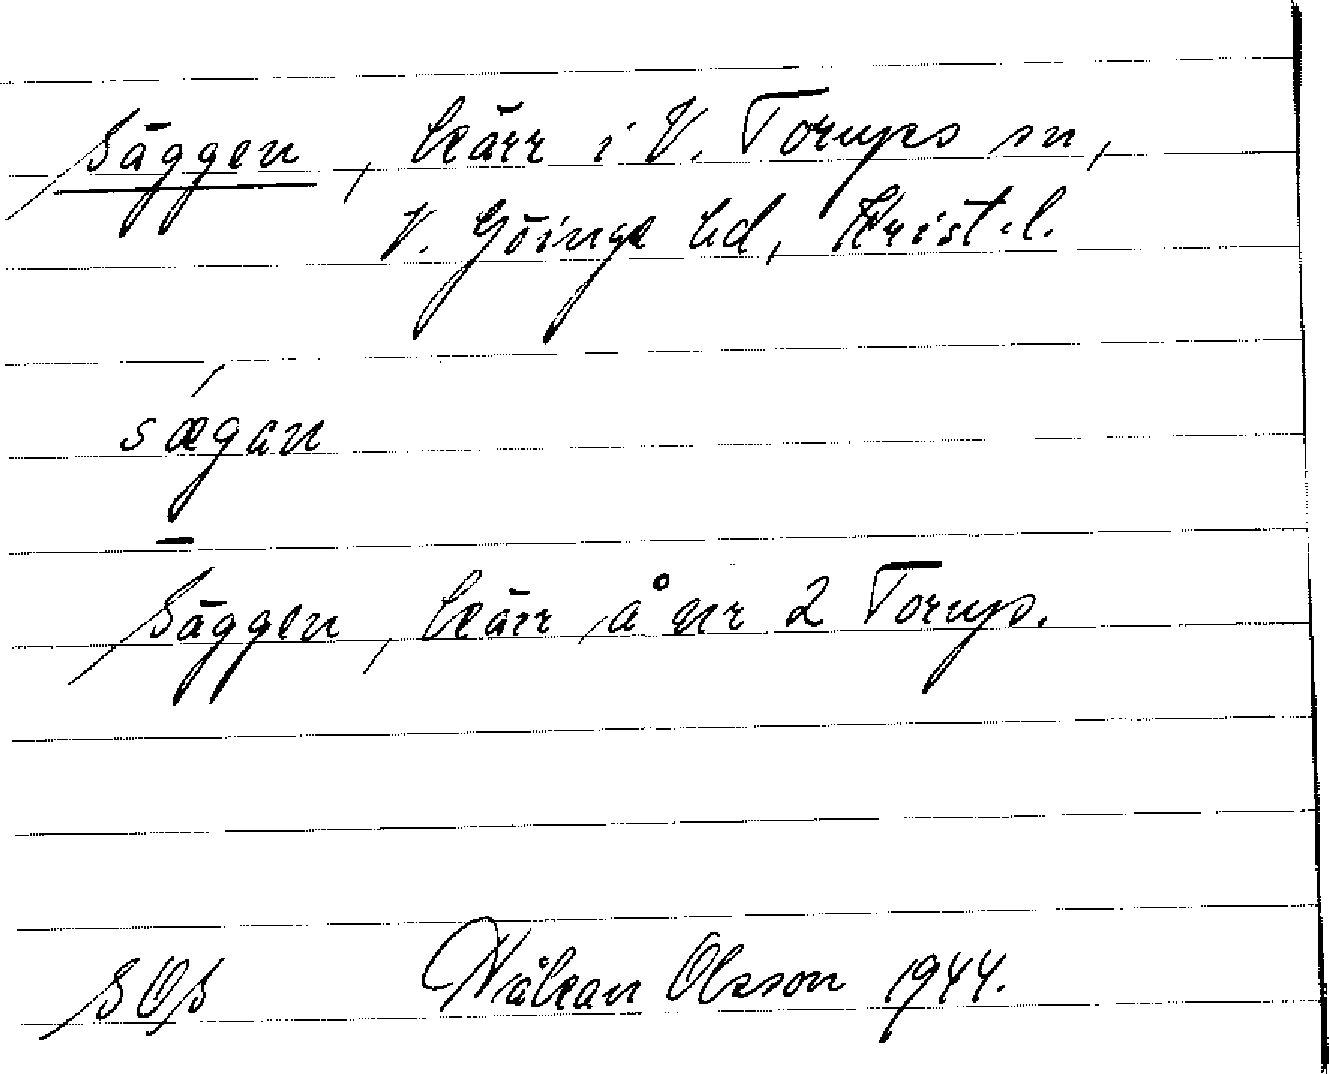 Säggen, kärr i V. Torups sn,
V. Göinge hd, Krist. l.
sægan
Säggen, kärr å nr 2 Torup.
SOS Håkan Olsson 1944.